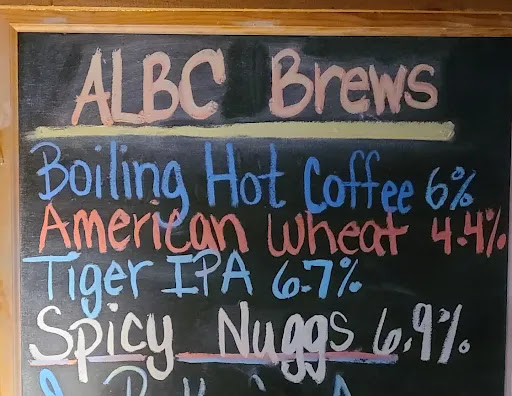 ALBC Brews
Boiling Hot Coffee 6%
American Wheat 4.4%
Tiger IPA 6.7%
Spicy Nuggs 6.9%